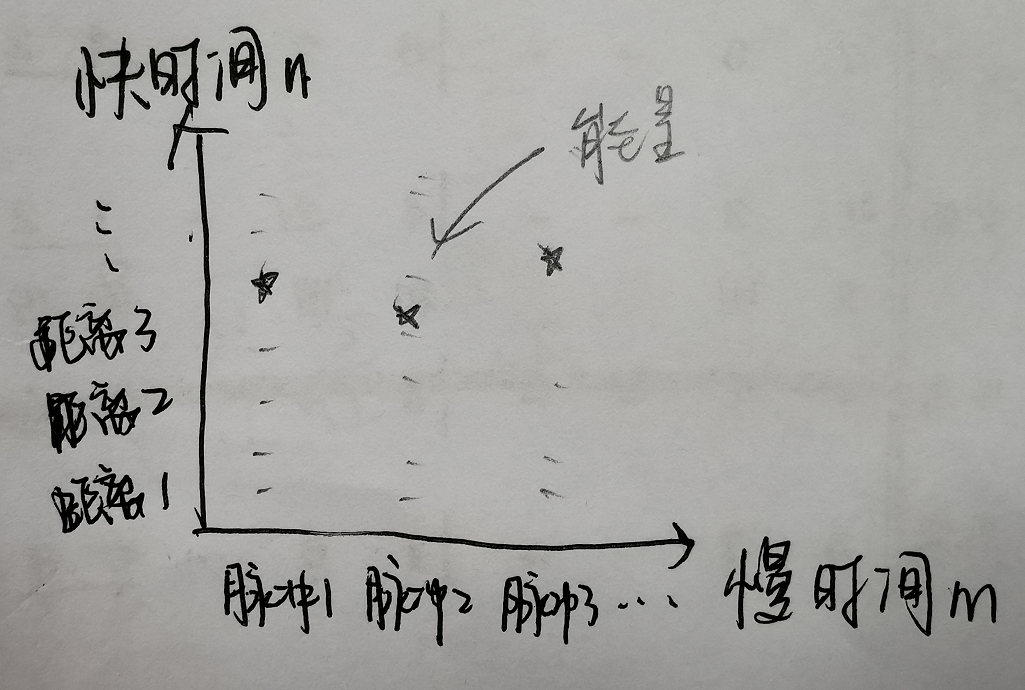 快时间n
能量
距离3
距离2
距离1
脉冲1 脉冲2 脉冲3 ...
慢时间m